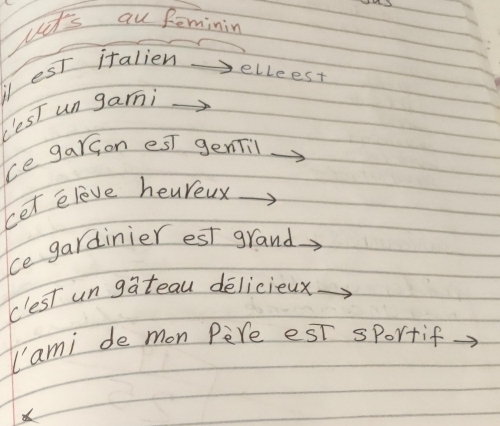 Mets au féminin
il est italien → elle est
c'est un garni →
ce garçon est gentil →
cet élève heureux →
ce gardinier est grand →
c'est un gâteau délicieux →
l'ami de mon Père est sportif →